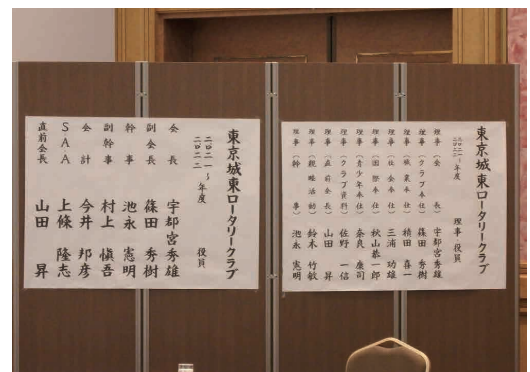 東京城東ロータリークラブ
二〇二一〜二〇二二年度 理事 役員
理事(会長) 宇都宮秀雄
理事(クラブ奉仕) 篠田 秀樹
理事(職業奉仕) 積田 喜一
理事(社会奉仕) 三浦 功雄
理事(国際奉仕) 秋山恭一郎
理事(青少年奉仕) 奈良 康司
理事(クラブ資料) 佐野 一信
理事(直前会長) 山田 昇
理事(親睦活動) 鈴木 竹敏
理事(幹事) 池永 憲明
東京城東ロータリークラブ
二〇二一〜二〇二二年度 役員
会長 宇都宮秀雄
副会長 篠田 秀樹
幹事 池永 憲明
副幹事 村上 慎吾
会計 今井 邦彦
SAA 上條 隆志
直前会長 山田 昇